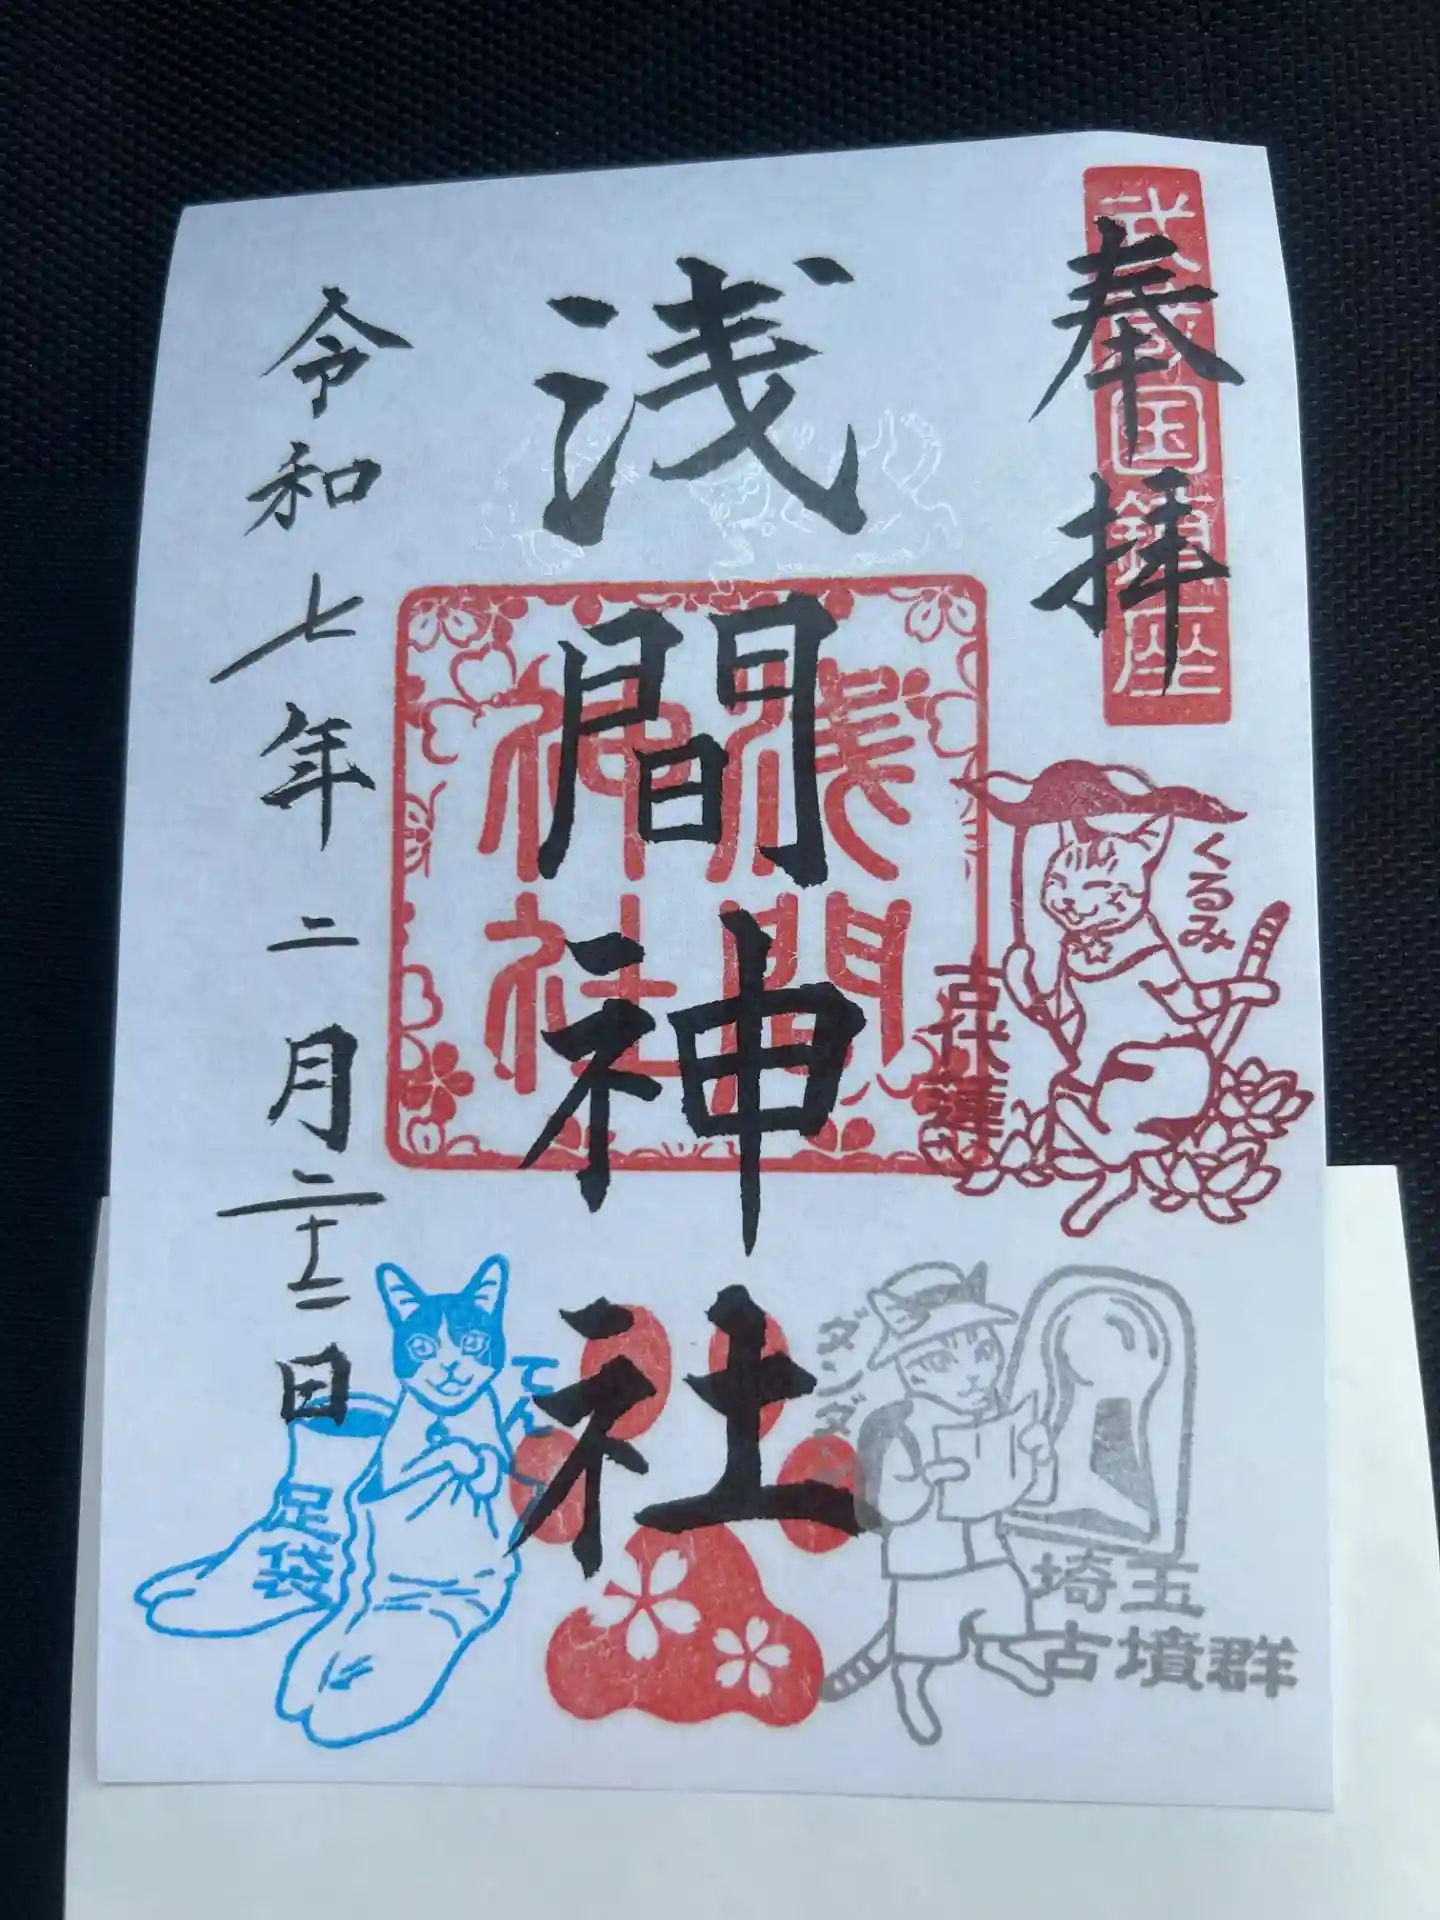 奉拝
武蔵国鎮座
浅間神社
浅間
神社
令和七年二月二十二日
くるみ
古代蓮
てん
足袋
ダンダ
埼玉
古墳群